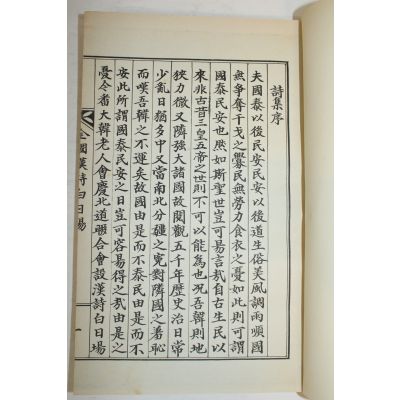 詩集序
夫國泰以後民安民安以後道生俗美風調雨順國
無爭奪干戈之釁民無勞力食衣之憂如此則可謂
國泰民安也然如斯聖世豈可易言哉自古生民以
來非古昔三皇五帝之世則不可以能焉也况吾韓則地
狹力微又隣強大諸國故閱觀五千年歷史治日常
少亂日猶多中又當南北分疆之寃對隣國之羞恥
而嘆吾韓之不運矣故國由是而不泰民由是而不
安此所謂國泰民安之日豈可容易得之哉由是之
憂今番大韓老人會慶北道聯合會設漢詩白日場
全國漢詩白日場
一